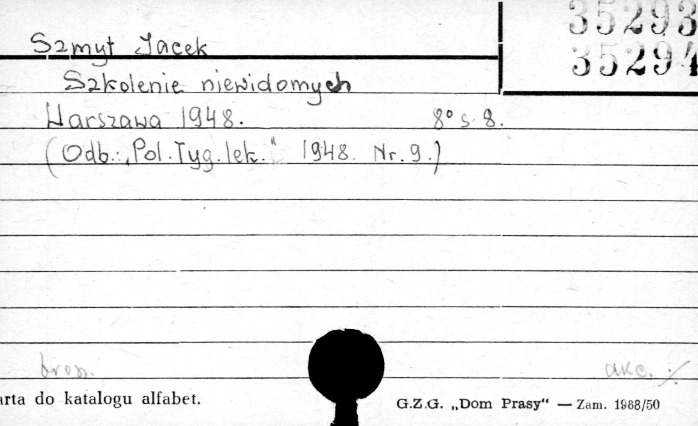 35293
35294
Szmyt Jacek
Szkolenie niewidomych
Warszawa 1948. 8° s. 8.
(Odb.: „Pol. Tyg. lek.“ 1948. Nr. 9.)
brosz. akc. ./.
arta do katalogu alfabet. G.Z.G. „Dom Prasy“ — Zam. 1968/50